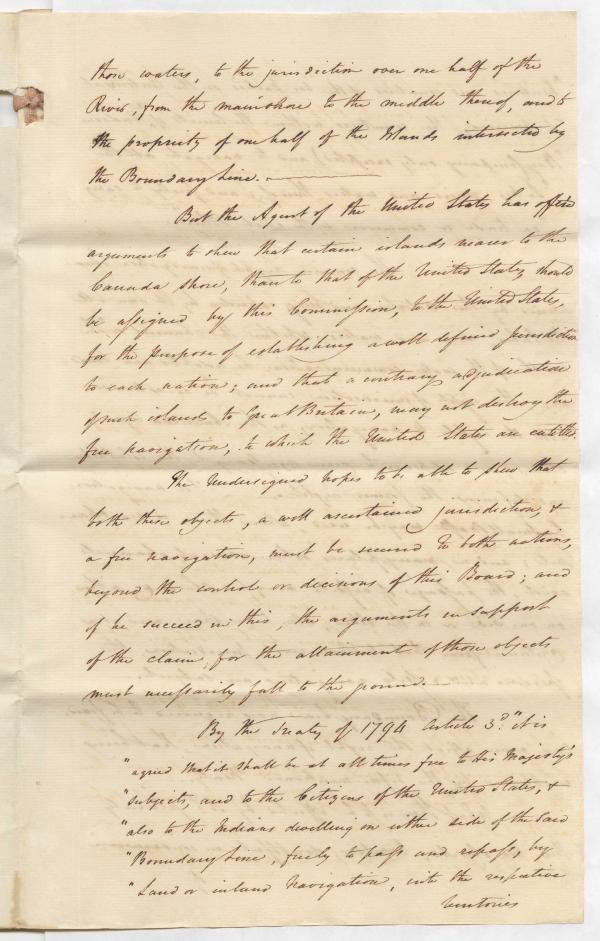 those waters, to the jurisdiction over one half of the
River, from the main shore to the middle thereof, and to
the propriety of one half of the Islands intersected by
the Boundary Line.
But the Agent of the United States has offered
arguments to shew that certain islands nearer to the
Canada shore, than to that of the United States, should
be assigned by this Commission, to the United States,
for the purpose of establishing a well defined jurisdiction
to each nation; and that a contrary adjudication
of such islands to Great Britain, may not destroy the
free navigation, to which the United States are entitled.
The Undersigned hopes to be able to shew that
both these objects, a well ascertained jurisdiction, &
a free navigation, must be secured to both nations,
beyond the control or decisions of this Board; and
if he succeed in this, the arguments in support
of the claim, for the attainment of those objects
must necessarily fall to the ground.
By the Treaty of 1794 Article 3d. "it is
"agreed that it shall be at all times free to His Majesty's
"subjects, and to the Citizens of the United States, &
"also to the Indians dwelling on either side of the said
"Boundary Line, freely to pass and repass, by
"Land or inland Navigation, into the respective
territories